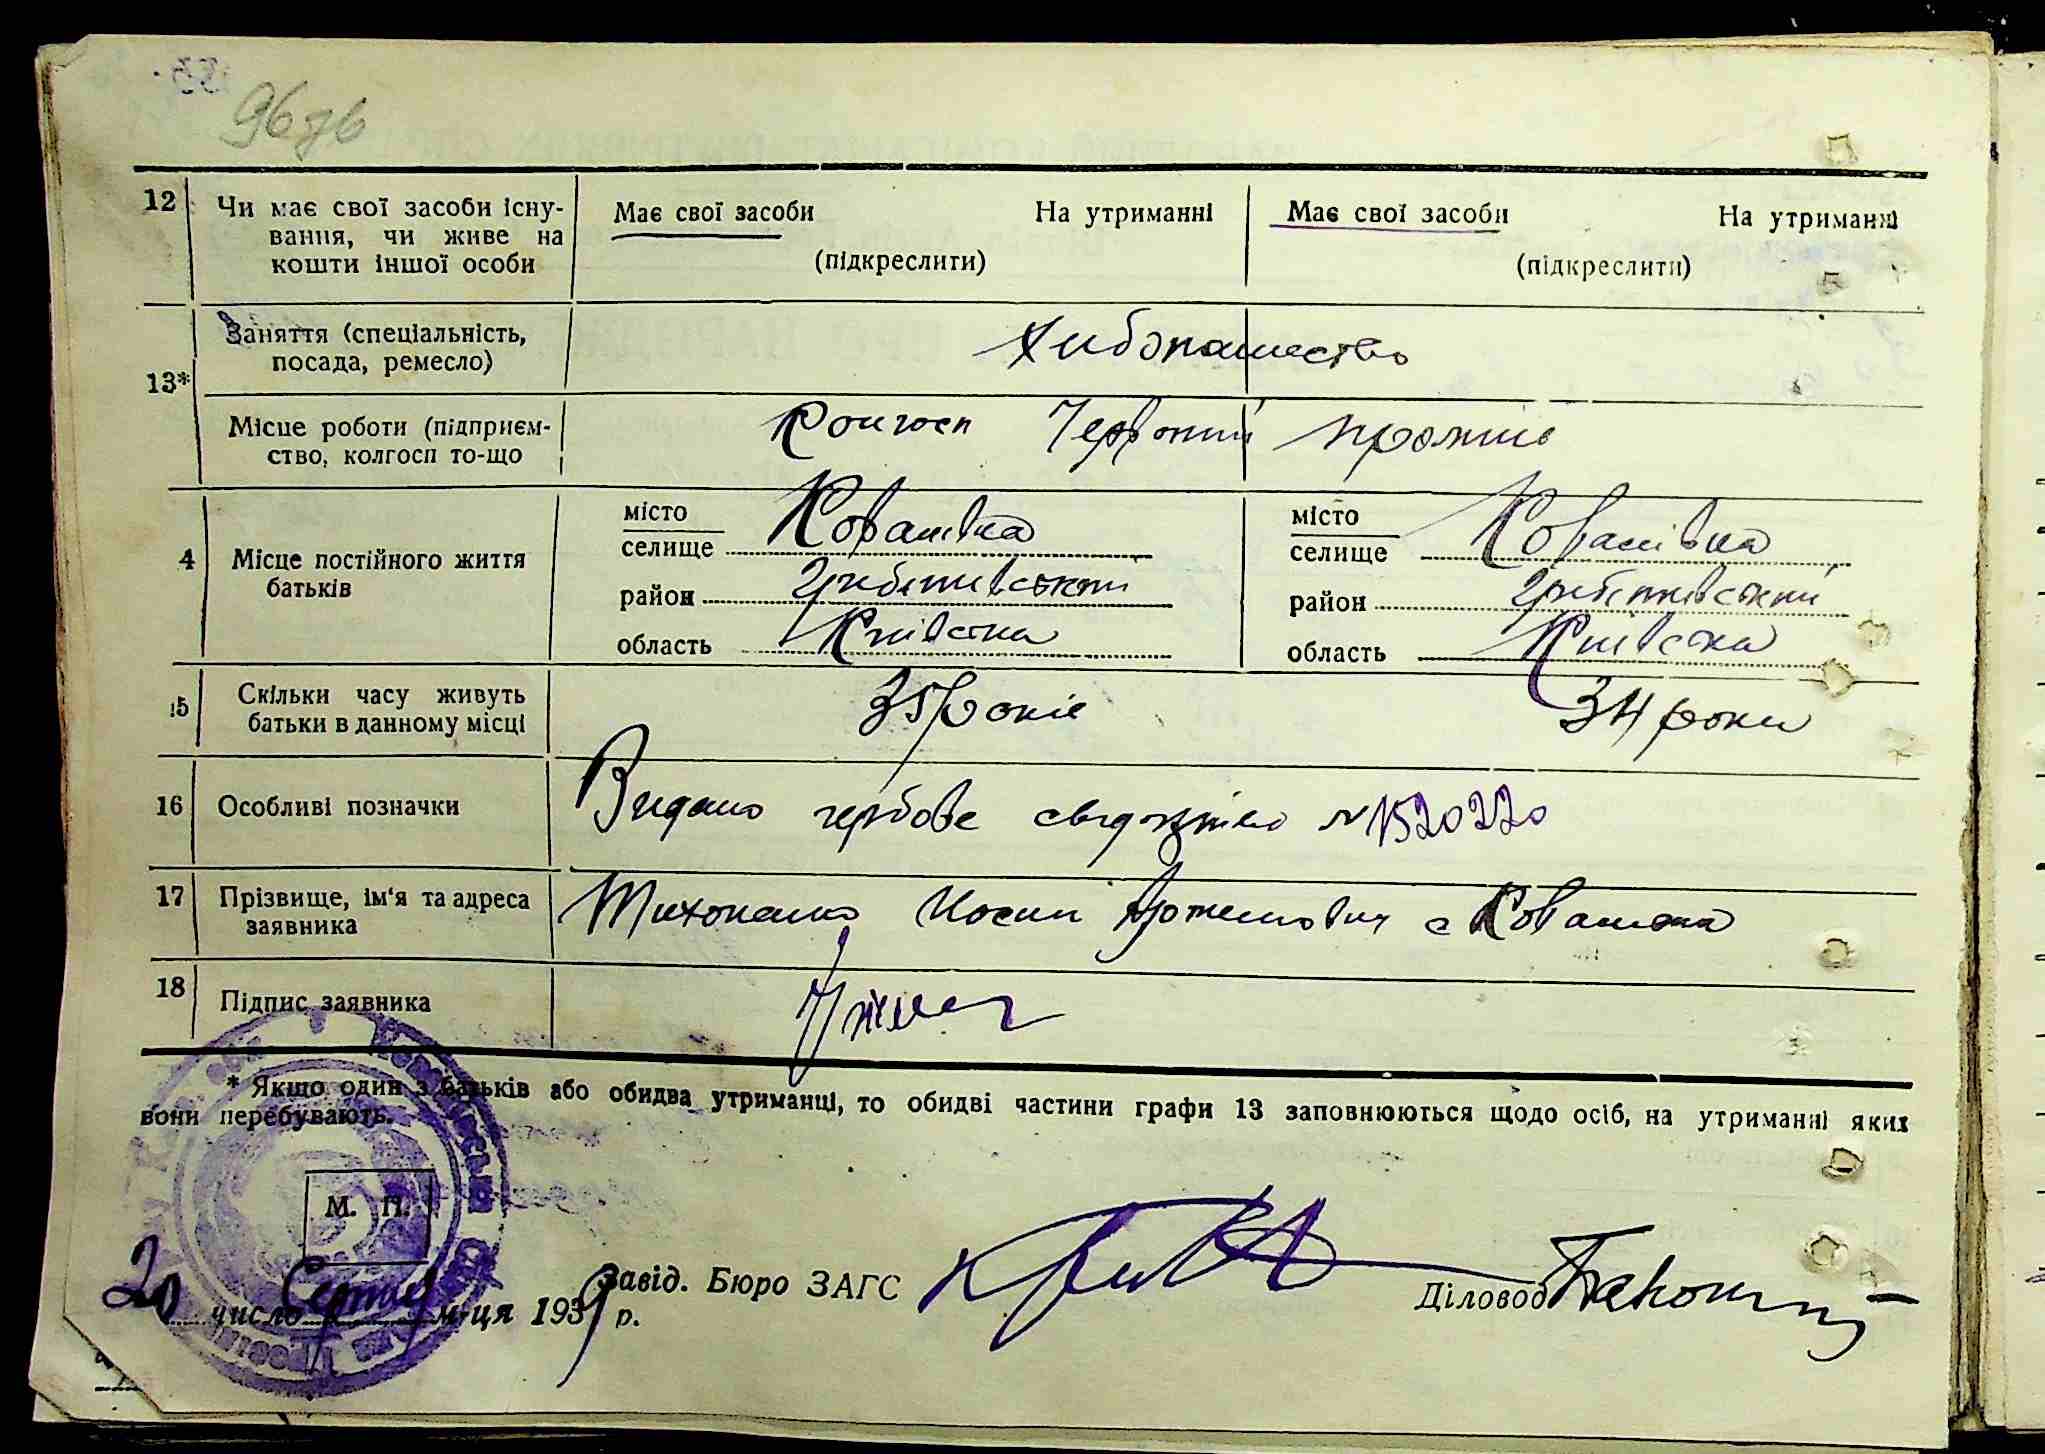 96 зв
12 Чи має свої засоби існу-
вання, чи живе на
кошти іншої особи
Має свої засоби На утриманні
(підкреслити)
Має свої засоби На утриманні
(підкреслити)
13*
Заняття (спеціальність,
посада, ремесло)
Хибопашество
Місце роботи (підприєм-
ство, колгосп то-що
Колгосп Червоний промінь
4 Місце постійного життя
батьків
місто
селище Ковалівка
район Гребінківський
область Київська
місто
селище Ковалівка
район Гребінківський
область Київська
15 Скільки часу живуть
батьки в данному місці
35 років
34 роки
16 Особливі позначки
Видано гербове свідоцтво № 1520220
17 Прізвище, ім'я та адреса
заявника
Тихоненко Иосип Артемович с Ковалівка
18 Підпис заявника
* Якщо один з батьків або обидва утриманці, то обидві частини графи 13 заповнюються щодо осіб, на утриманні яких
вони перебувають.
М. П.
20 число Серпня м-ця 193 р.
Завід. Бюро ЗАГС
Діловод